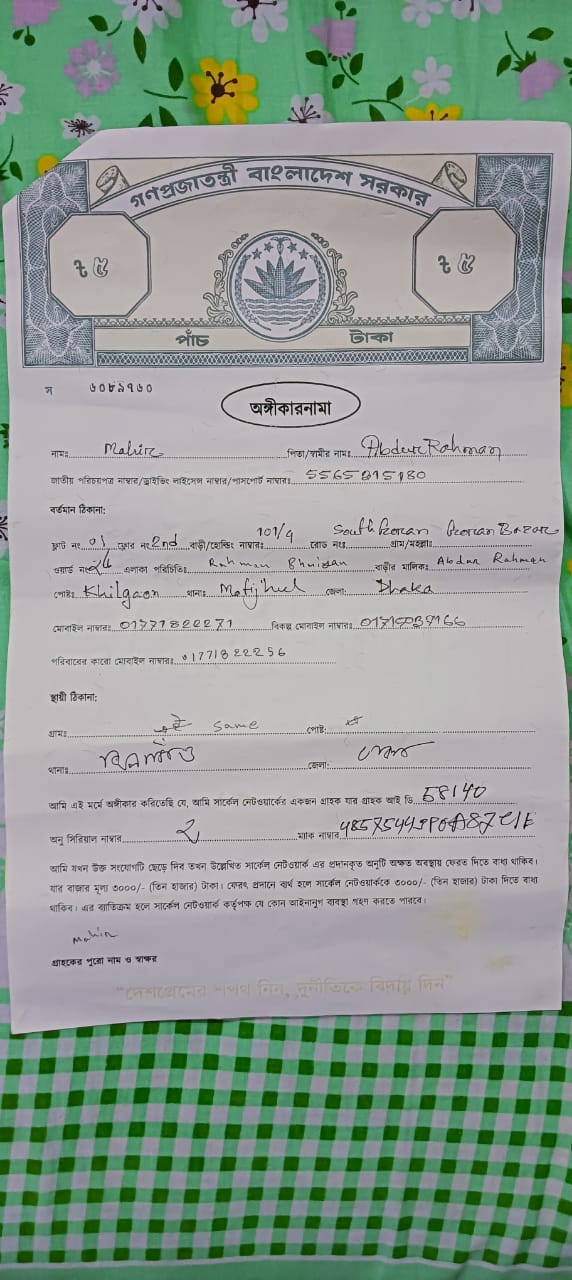 গণপ্রজাতন্ত্রী বাংলাদেশ সরকার
৳ ৫ ৳ ৫
পাঁচ টাকা
অঙ্গীকারনামা
নামঃ Mahir পিতা/স্বামীর নামঃ Abdur Rahman
জাতীয় পরিচয়পত্র নাম্বার/ড্রাইভিং লাইসেন্স নাম্বার/পাসপোর্ট নাম্বারঃ
বর্তমান ঠিকানা:
ফ্লাট নং 01 ফ্লোর নং 2nd বাড়ী/হোল্ডিং নাম্বারঃ 101/4 রোড নংঃ South গ্রাম/মহল্লাঃ Bazar
ওয়ার্ড নংঃ এলাকা পরিচিতিঃ Rahman Bhuiyan বাড়ীর মালিকঃ Abdur Rahman
পোষ্টঃ Khilgaon থানাঃ জেলাঃ Dhaka
মোবাইল নাম্বারঃ 01771822271 বিকল্প মোবাইল নাম্বারঃ
পরিবারের কারো মোবাইল নাম্বারঃ 01771822256
স্থায়ী ঠিকানা:
গ্রামঃ same পোষ্ট:
থানাঃ জেলা:
আমি এই মর্মে অঙ্গীকার করিতেছি যে, আমি সার্কেল নেটওয়ার্কের একজন গ্রাহক যার গ্রাহক আই ডি 58140
অনু সিরিয়াল নাম্বার 2 ম্যাক নাম্বার
আমি যখন উক্ত সংযোগটি ছেড়ে দিব তখন উল্লেখিত সার্কেল নেটওয়ার্ক এর প্রদানকৃত অনুটি অক্ষত অবস্থায় ফেরত দিতে বাধ্য থাকিব।
যার বাজার মূল্য ৩০০০/- (তিন হাজার) টাকা। ফেরৎ প্রদানে ব্যর্থ হলে সার্কেল নেটওয়ার্ককে ৩০০০/- (তিন হাজার) টাকা দিতে বাধ্য
থাকিব। এর ব্যতিক্রম হলে সার্কেল নেটওয়ার্ক কর্তৃপক্ষ যে কোন আইনানুগ ব্যবস্থা গ্রহণ করতে পারবে।
Mahir
গ্রাহকের পুরো নাম ও স্বাক্ষর
"দেশপ্রেমের শপথ নিন, দুর্নীতিকে বিদায় দিন"